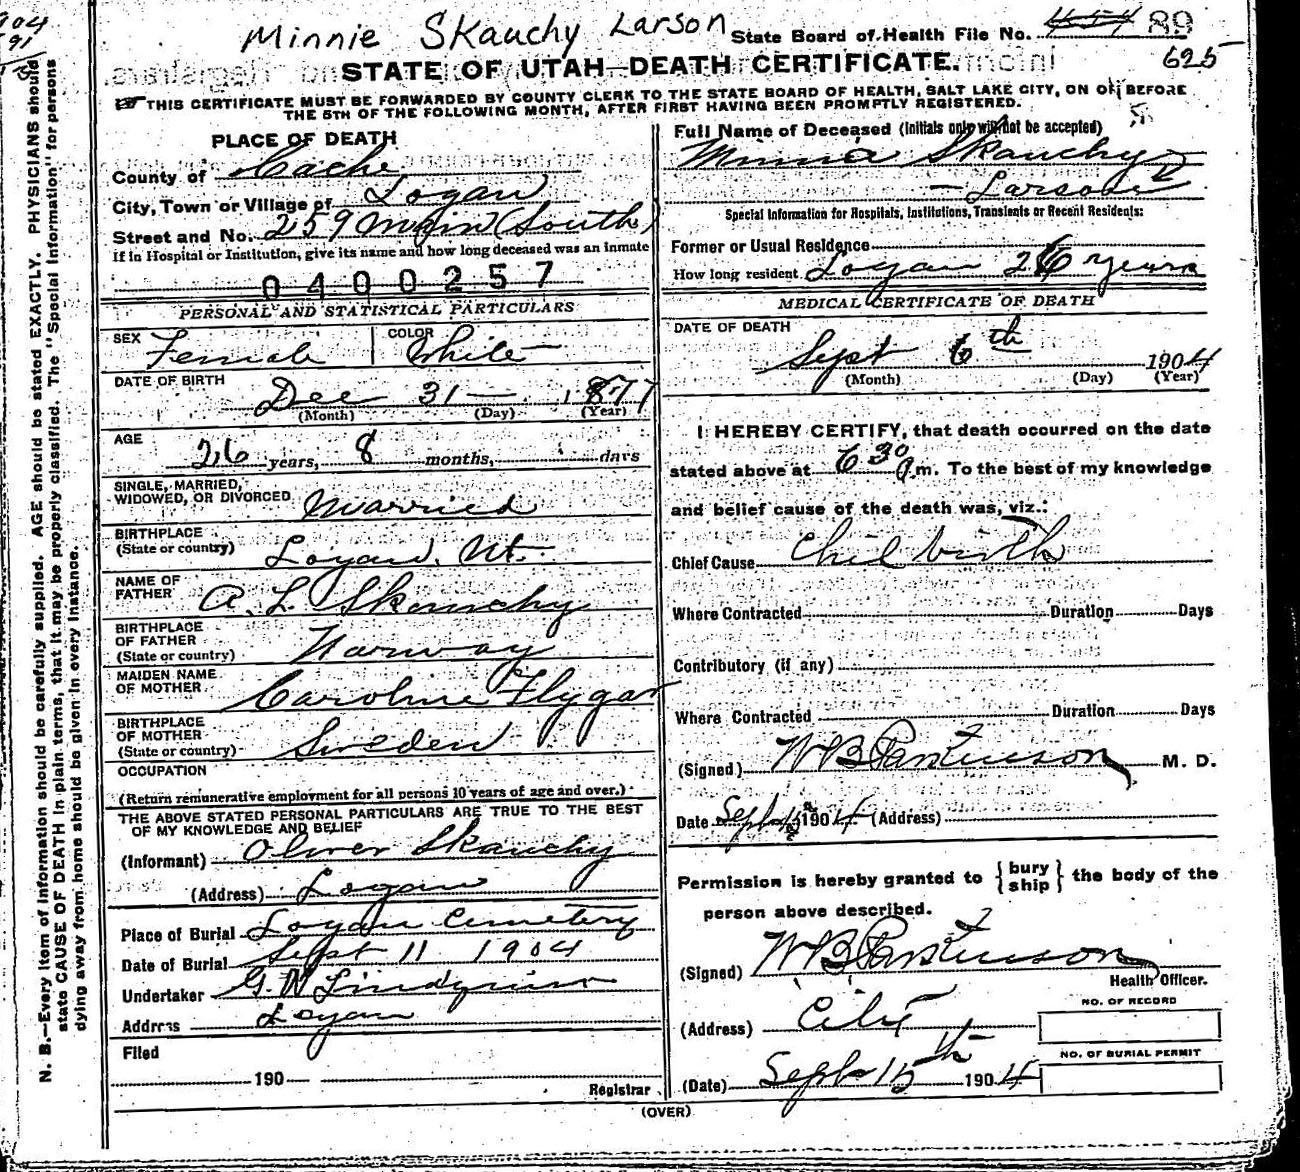 904
91
Minnie Skauchy Larson
State Board of Health File No. 454 89
625
STATE OF UTAH—DEATH CERTIFICATE.
THIS CERTIFICATE MUST BE FORWARDED BY COUNTY CLERK TO THE STATE BOARD OF HEALTH, SALT LAKE CITY, ON OR BEFORE
THE 5TH OF THE FOLLOWING MONTH, AFTER FIRST HAVING BEEN PROMPTLY REGISTERED.
N. B.—Every item of information should be carefully supplied. AGE should be stated EXACTLY. PHYSICIANS should
state CAUSE OF DEATH in plain terms, that it may be properly classified. The "Special Information" for persons
dying away from home should be given in every instance.
PLACE OF DEATH
County of Cache
City, Town or Village of Logan
Street and No. 259 Main (South)
If in Hospital or Institution, give its name and how long deceased was an inmate
0400257
PERSONAL AND STATISTICAL PARTICULARS
SEX Female COLOR White
DATE OF BIRTH Dec 31 1877
(Month) (Day) (Year)
AGE 26 years, 8 months, days
SINGLE, MARRIED,
WIDOWED, OR DIVORCED Married
BIRTHPLACE
(State or country) Logan. Ut.
NAME OF
FATHER A. L. Skanchy
BIRTHPLACE
OF FATHER
(State or country) Norway
MAIDEN NAME
OF MOTHER Caroline Flygar
BIRTHPLACE
OF MOTHER
(State or country) Sweden
OCCUPATION
(Return remunerative employment for all persons 10 years of age and over.)
THE ABOVE STATED PERSONAL PARTICULARS ARE TRUE TO THE BEST
OF MY KNOWLEDGE AND BELIEF
(Informant) Oliver Skanchy
(Address) Logan
Place of Burial Logan Cemetery
Date of Burial Sept 11 1904
Undertaker G. W Lindquist
Address Logan
Filed
190
Registrar
Full Name of Deceased (Initials only will not be accepted)
Minnie Skauchy
—Larson
Special Information for Hospitals, Institutions, Transients or Recent Residents:
Former or Usual Residence
How long resident Logan 26 years
MEDICAL CERTIFICATE OF DEATH
DATE OF DEATH
Sept 6th 1904
(Month) (Day) (Year)
I HEREBY CERTIFY, that death occurred on the date
stated above at 6 30 m. To the best of my knowledge
and belief cause of the death was, viz.:
Chief Cause Chil birth
Where Contracted Duration Days
Contributory (if any)
Where Contracted Duration Days
(Signed) W B Parkinson M. D.
Date Sept 1904 (Address)
Permission is hereby granted to {bury ship} the body of the
person above described.
(Signed) W B Parkinson
Health Officer.
(Address) City
NO. OF RECORD
NO. OF BURIAL PERMIT
(Date) Sept 15th 1904
(OVER)